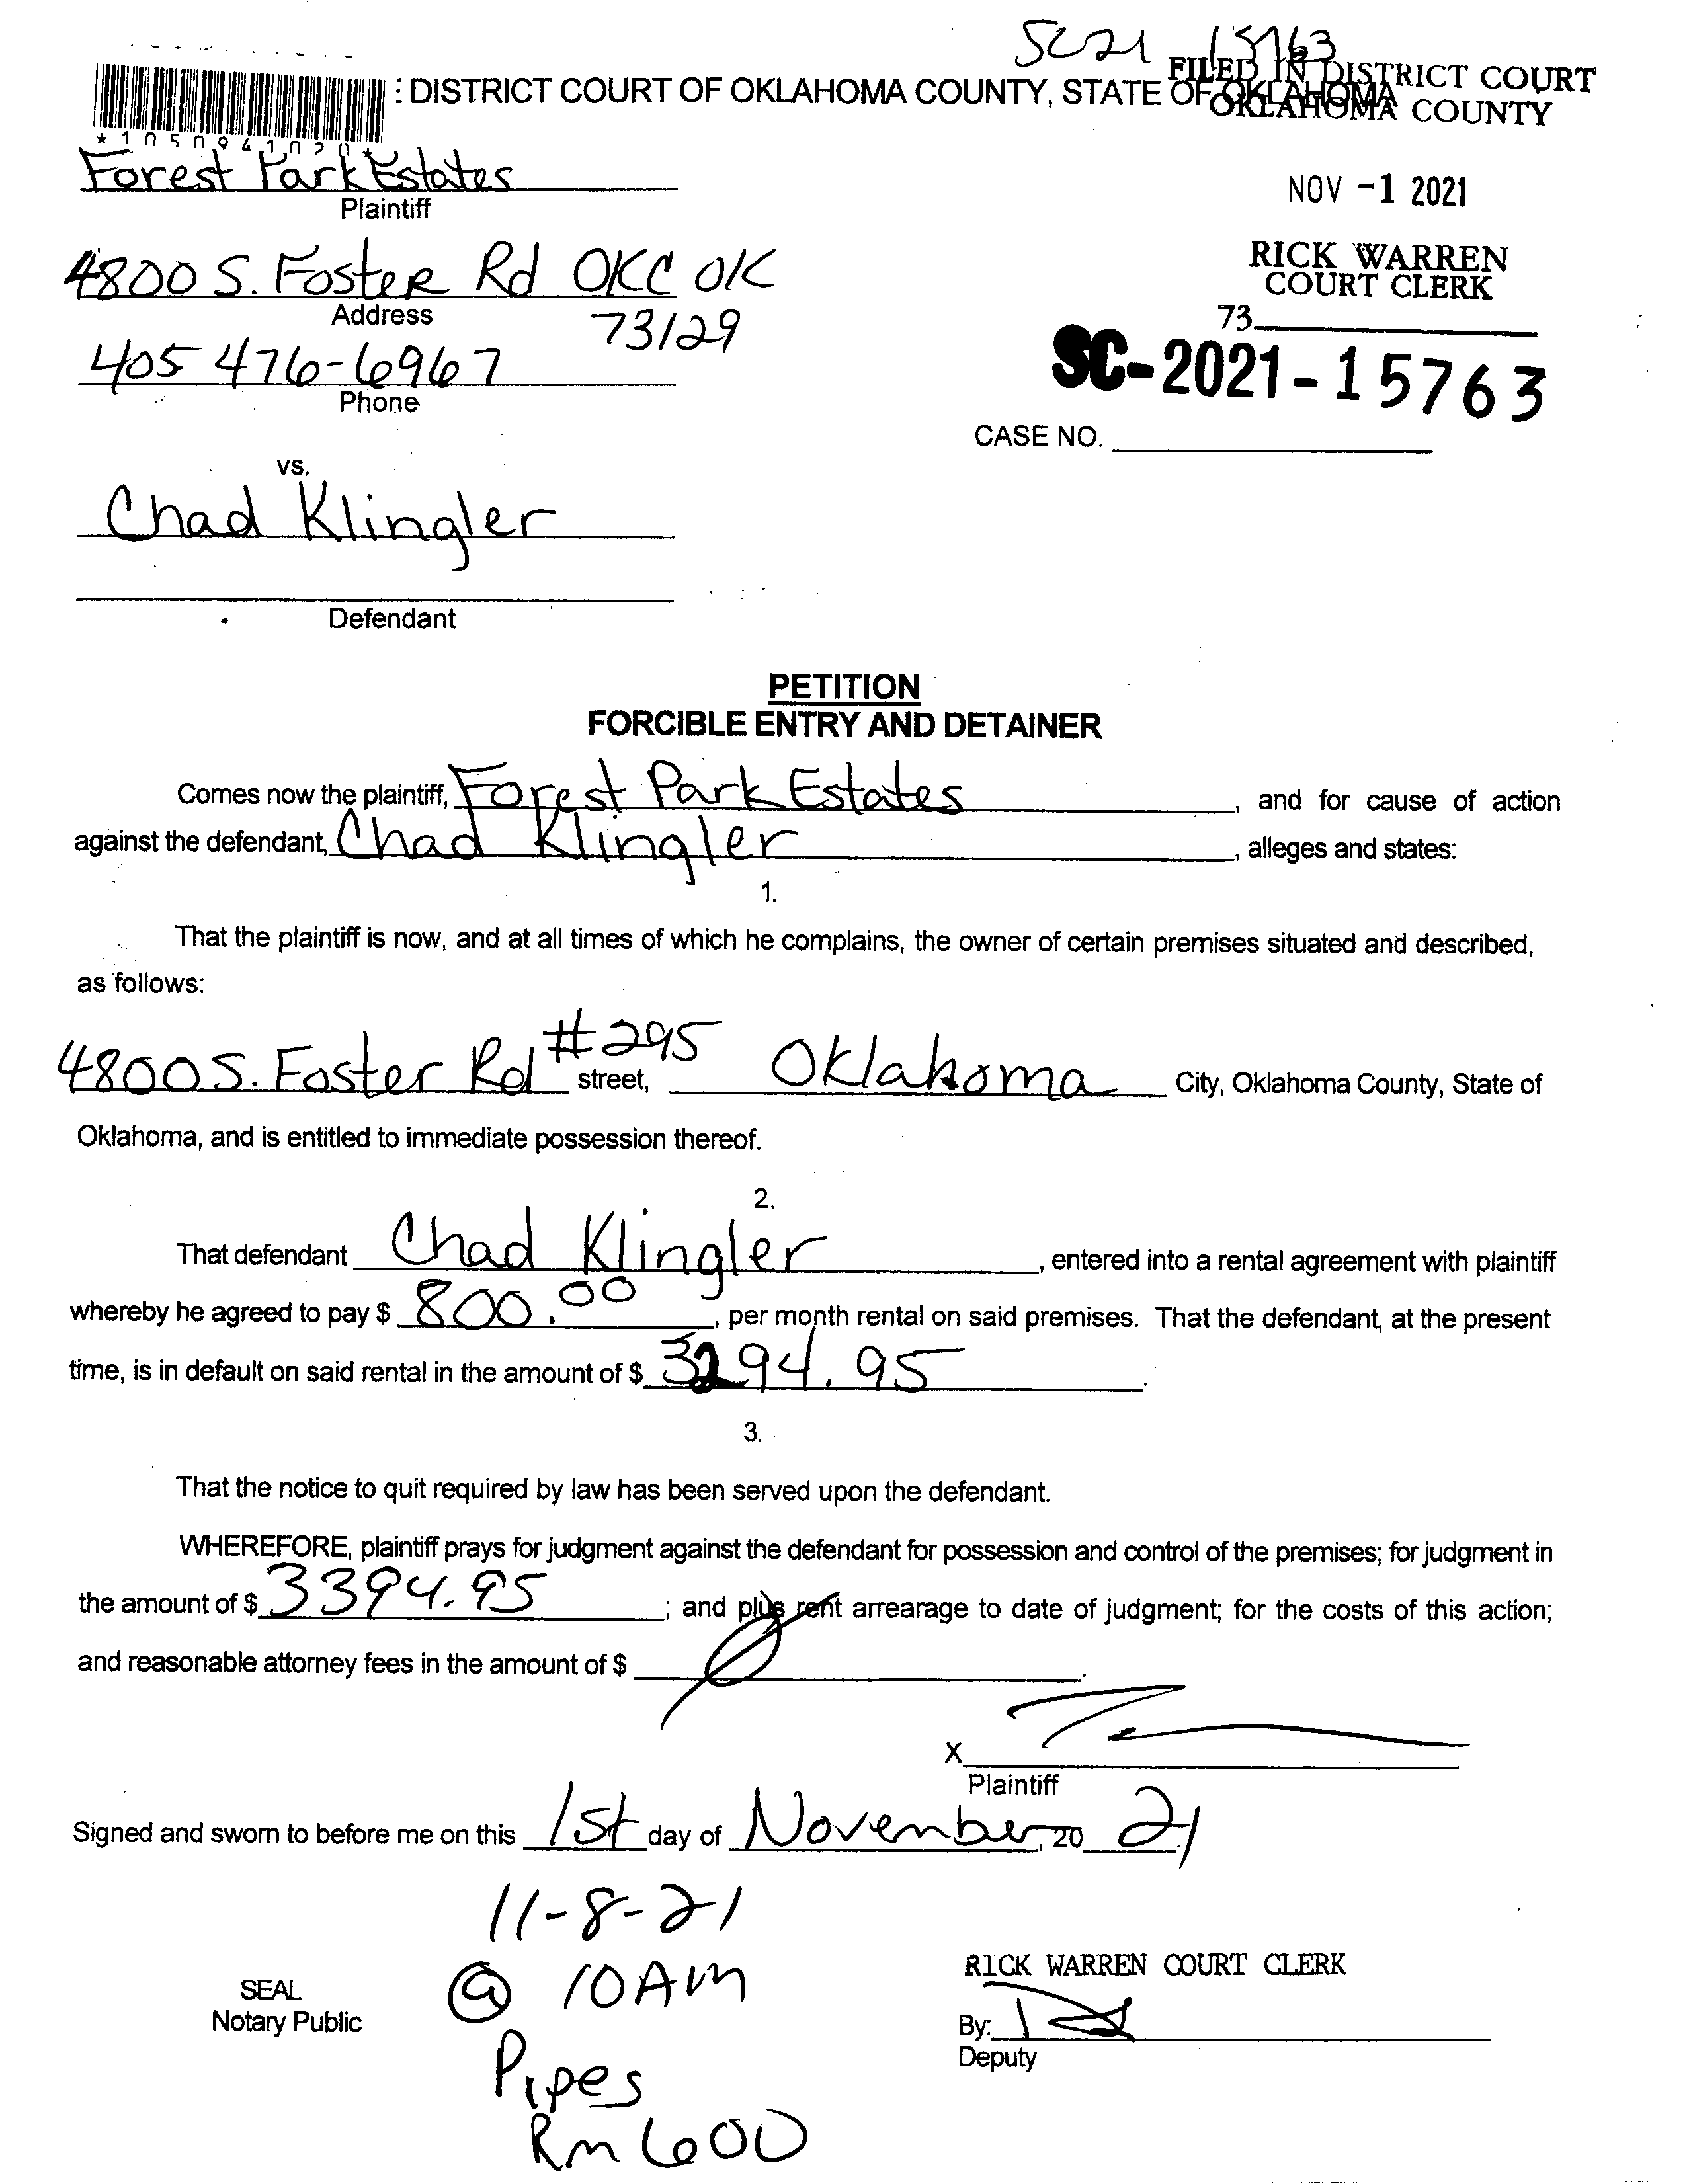 SC21 15763
: DISTRICT COURT OF OKLAHOMA COUNTY, STATE OF OKLAHOMA
FILED IN DISTRICT COURT
OKLAHOMA COUNTY
*1050941020*
Forest Park Estates
Plaintiff
NOV -1 2021
4800 S. Foster Rd OKC OK
Address
73129
RICK WARREN
COURT CLERK
73
405 476-6967
Phone
SC-2021-15763
CASE NO.
vs.
Chad Klingler
Defendant
PETITION
FORCIBLE ENTRY AND DETAINER
Comes now the plaintiff, Forest Park Estates, and for cause of action
against the defendant, Chad Klingler, alleges and states:
1.
That the plaintiff is now, and at all times of which he complains, the owner of certain premises situated and described,
as follows:
4800 S. Foster Rd #295 street, Oklahoma City, Oklahoma County, State of
Oklahoma, and is entitled to immediate possession thereof.
2.
That defendant Chad Klingler, entered into a rental agreement with plaintiff
whereby he agreed to pay $ 800.00, per month rental on said premises. That the defendant, at the present
time, is in default on said rental in the amount of $ 3294.95.
3.
That the notice to quit required by law has been served upon the defendant.
WHEREFORE, plaintiff prays for judgment against the defendant for possession and control of the premises; for judgment in
the amount of $ 3394.95; and plus rent arrearage to date of judgment; for the costs of this action;
and reasonable attorney fees in the amount of $ Ø.
X
Plaintiff
Signed and sworn to before me on this 1st day of November, 20 21.
11-8-21
@ 10AM
Pipes
Rm 600
SEAL
Notary Public
RICK WARREN COURT CLERK
By:
Deputy